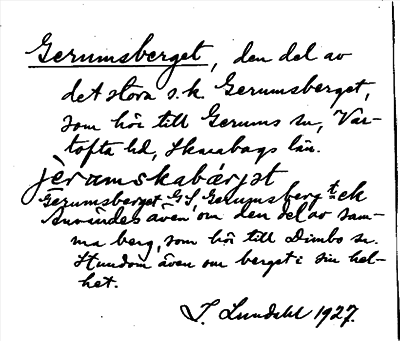 Gerumsberget, den del av
det stora s.k. Gerumsberget,
som hör till Gerums sn, Var-
tofta hd, Skarabags län.
jèrumskabárjət
Gerumsberget, G.S. Gerumsberg ek
Användes även om den del av sam-
ma berg, som hör till Dimbo sn.
Stundom även om berget i sin hel-
het.
I. Lundahl 1927.